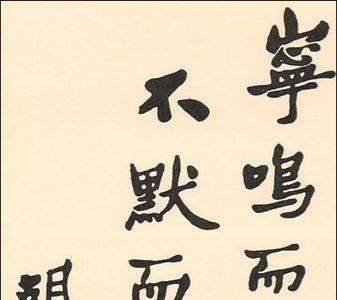 寧鳴而
不默而
胡